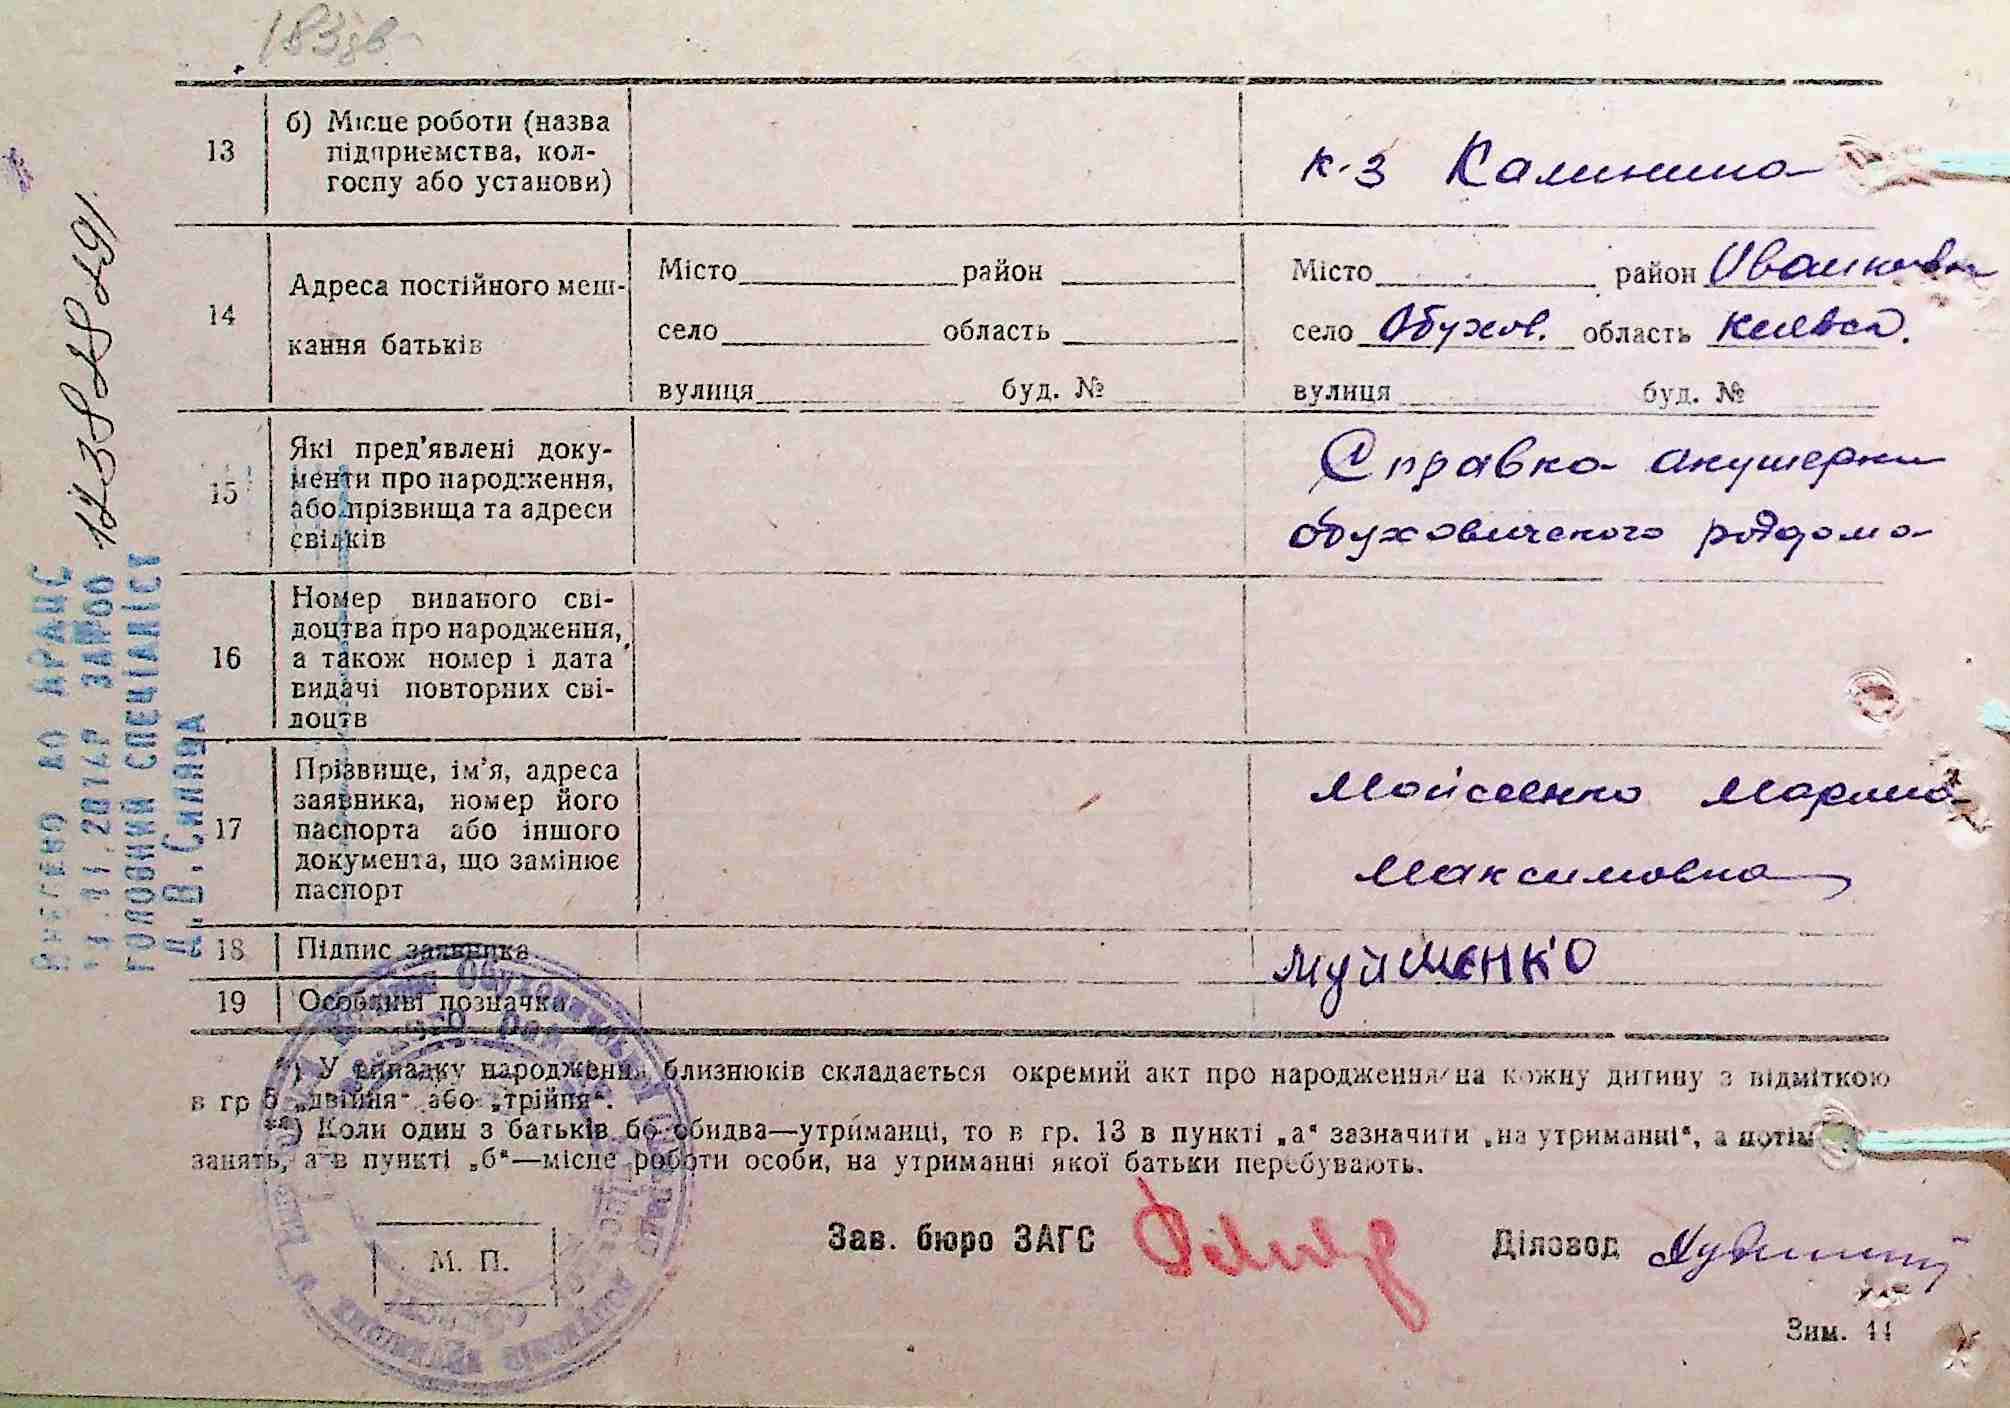 183зв
13
б) Місце роботи (назва
підприємства, кол-
госпу або установи)
к-з Калинина
14
Адреса постійного меш-
кання батьків
Місто район
село область
вулиця буд. №
Місто район Иванковск
село Обухов. область Киевск.
вулиця буд. №
15
Які пред'явлені доку-
менти про народження,
або прізвища та адреси
свідків
Справка акушерки
Обуховичского роддома
16
Номер виданого сві-
доцтва про народження,
а також номер і дата
видачі повторних сві-
доцтв
17
Прізвище, ім'я, адреса
заявника, номер його
паспорта або іншого
документа, що замінює
паспорт
Мойсеенко Мария
Максимовна
18
Підпис заявника
МуйшЕНКО
19
Особливі позначка
*) У випадку народження близнюків складається окремий акт про народження на кожну дитину з відміткою
в гр 6 „двійня" або „трійня".
**) Коли один з батьків бо обидва—утриманці, то в гр. 13 в пункті „а" зазначити „на утриманні", а потім
занять, а в пункті „б"—місце роботи особи, на утриманні якої батьки перебувають.
М. П.
Зав. бюро ЗАГС
Діловод
Зим. 11
Внесено до ДРАЦС
11.2014р за №00
головний спеціаліст